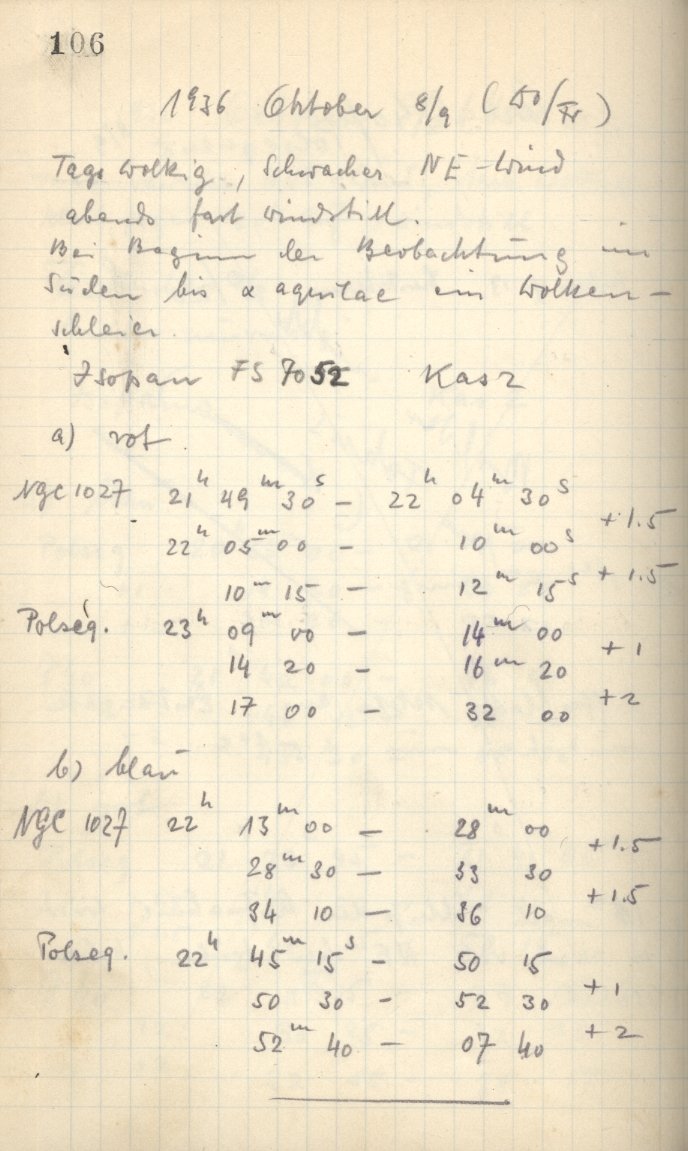 106
1936 Oktober 8/9 (Do/Fr)
Tags wolkig, schwacher NE-Wind
abends fast windstill.
Bei Beginn der Beobachtung im
Süden bis α aquilae ein Wolken-
schleier.
Isopan FS 7052 Kas 2
a) rot
NGC 1027 21h 49m 30s – 22h 04m 30s
+1.5
22h 05m 00 – 10m 00s
+1.5
10m 15 – 12m 15s
Polseq. 23h 09m 00 – 14m 00
+1
14 20 – 16m 20
+2
17 00 – 32 00
b) blau
NGC 1027 22h 13m 00 – 28m 00
+1.5
28m 30 – 33 30
+1.5
34 10 – 36 10
Polseq. 22h 45m 15s – 50 15
+1
50 30 – 52 30
+2
52m 40 – 07 40